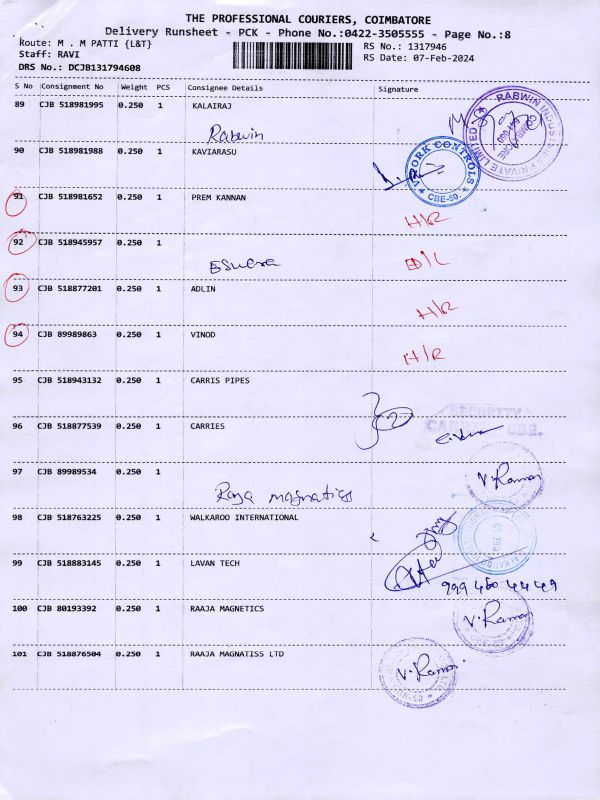 THE PROFESSIONAL COURIERS, COIMBATORE
Delivery Runsheet - PCK - Phone No.:0422-3505555 - Page No.:8
Route: M . M PATTI {L&T}
RS No.: 1317946
Staff: RAVI
RS Date: 07-Feb-2024
DRS No.: DCJB131794608
S No Consignment No Weight PCS Consignee Details Signature
89 CJB 518981995 0.250 1 KALAIRAJ
Rabwin
RABWIN INDUSTRIES PRIVATE LIMITED
90 CJB 518981988 0.250 1 KAVIARASU
CONTROLS
CBE-50.
91 CJB 518981652 0.250 1 PREM KANNAN
H/R
92 CJB 518945957 0.250 1
Eswara D/L
93 CJB 518877201 0.250 1 ADLIN
H/R
94 CJB 89989863 0.250 1 VINOD
H/R
95 CJB 518943132 0.250 1 CARRIS PIPES
2
SECURITY
96 CJB 518877539 0.250 1 CARRIES
97 CJB 89989534 0.250 1
Raja magnatics
V. Raman
98 CJB 518763225 0.250 1 WALKAROO INTERNATIONAL
99 CJB 518883145 0.250 1 LAVAN TECH
999 460 4449
100 CJB 80193392 0.250 1 RAAJA MAGNETICS
V. Raman
101 CJB 518876504 0.250 1 RAAJA MAGNATISS LTD
V. Raman